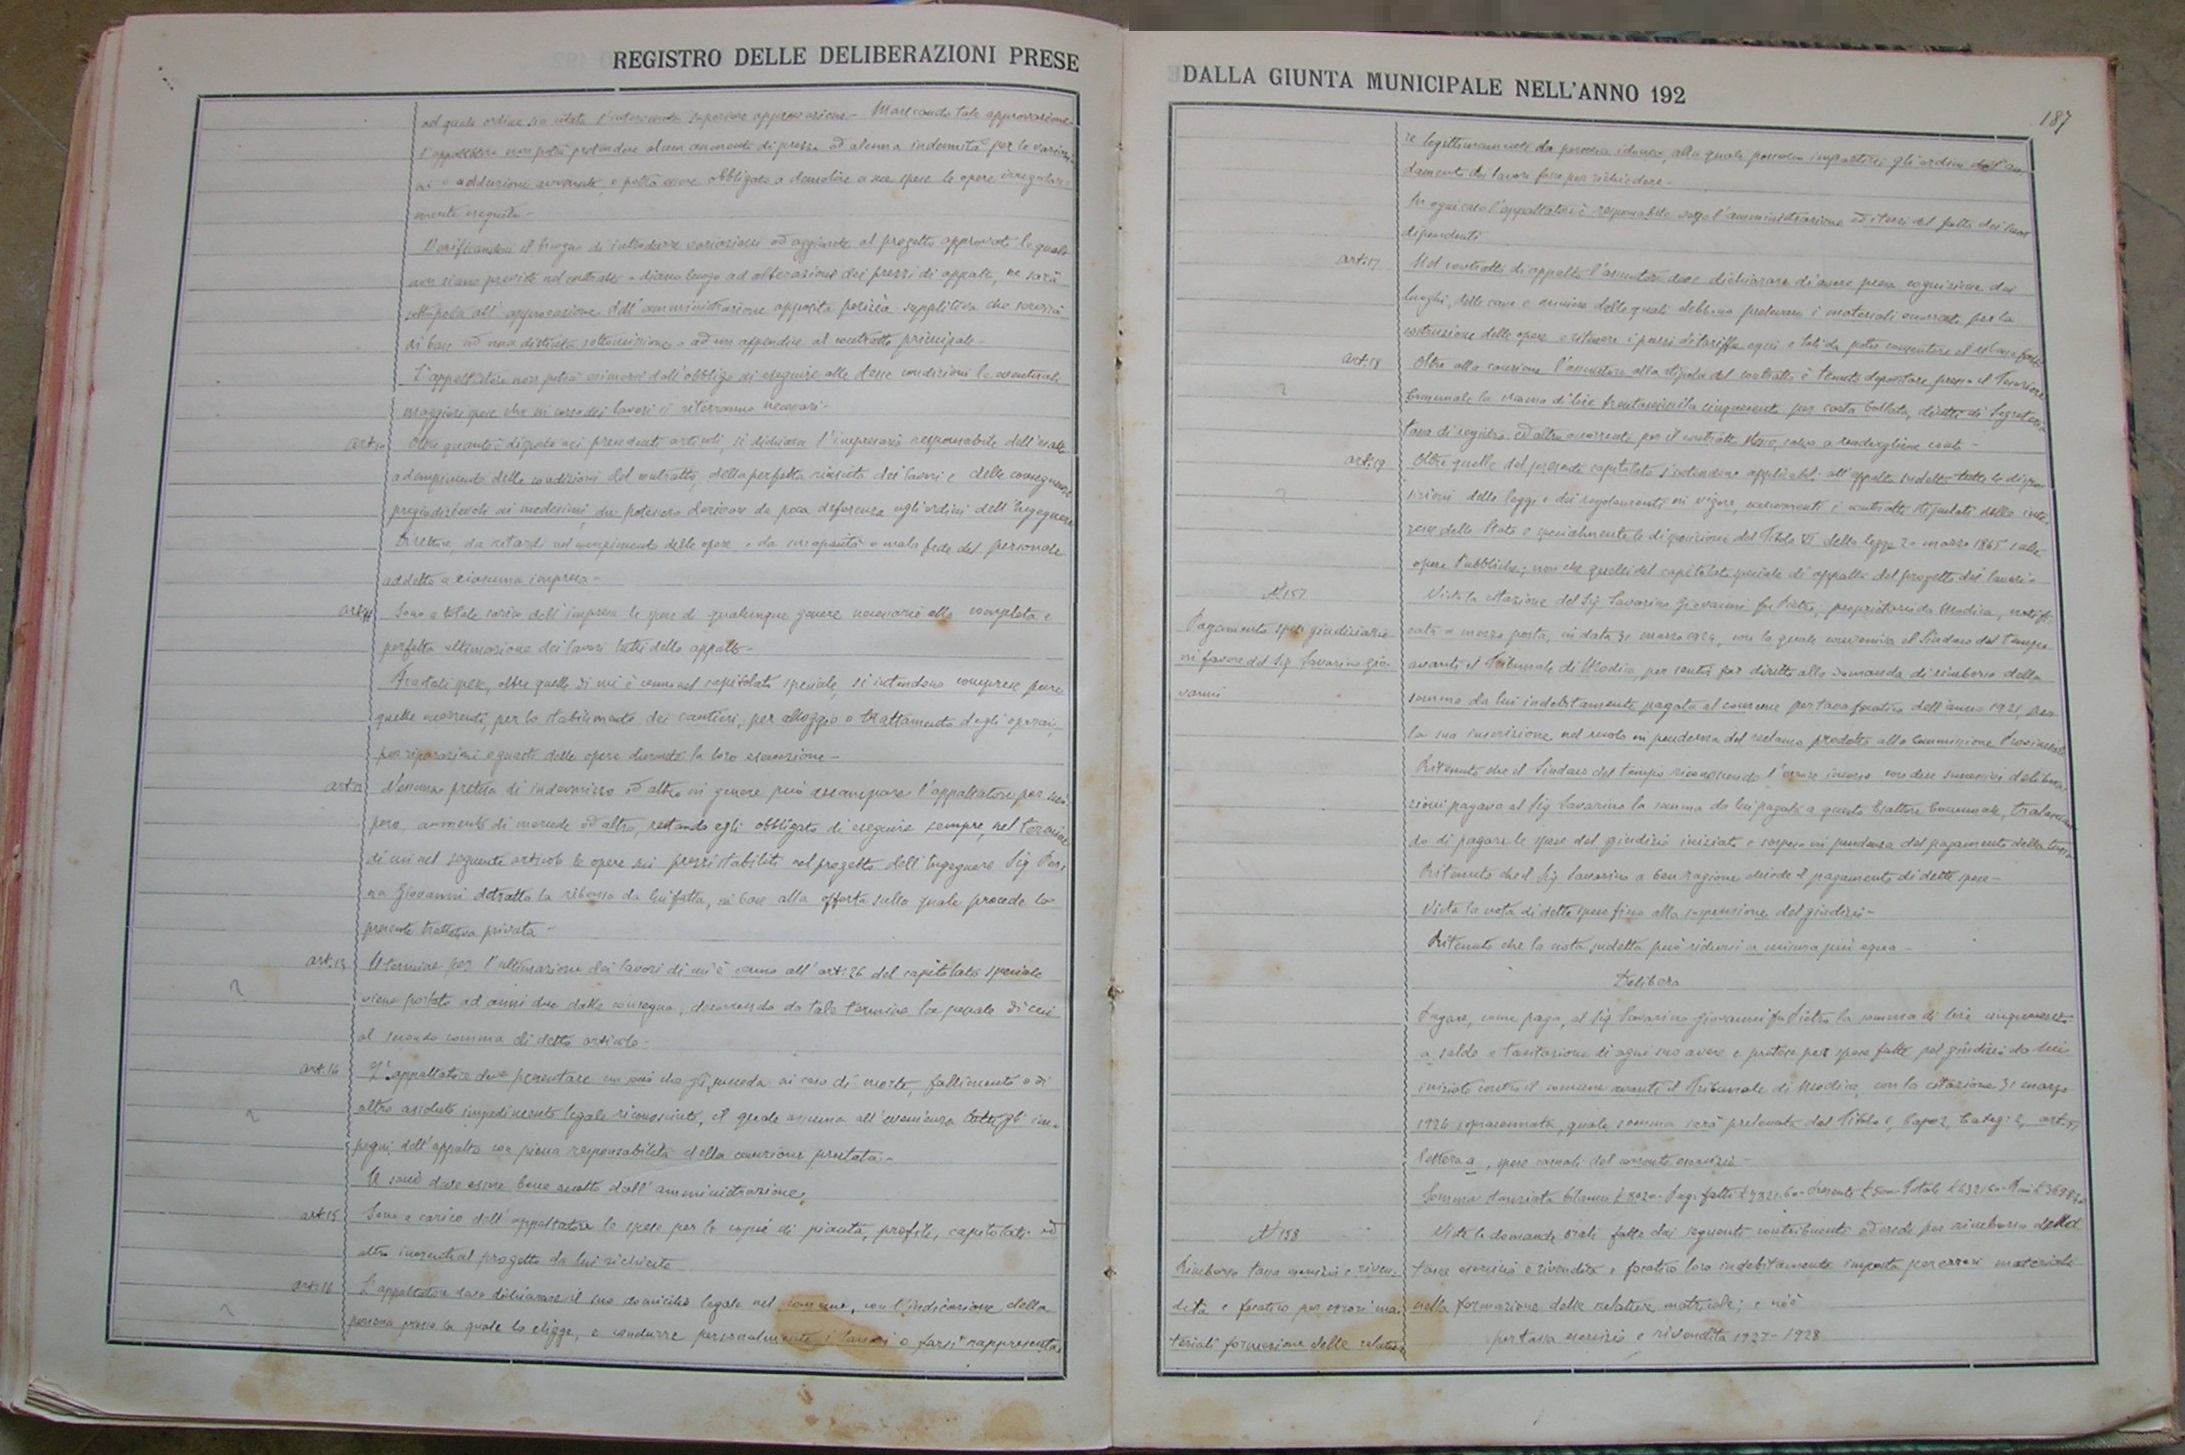 REGISTRO DELLE DELIBERAZIONI PRESE
ad quale ordine sia citata l'intervenuta superiore approvazione - Mancando tale approvazione
l'appaltatore non potrà pretendere alcun aumento di prezzo od alcuna indennità per le variazio
ni o addizioni avvenute, e potrà essere obbligato a demolire a sue spese le opere irregolar-
mente eseguite -
Verificandosi il bisogno di introdurre variazioni od aggiunte al progetto approvato le quali
non siano previste nel contratto e diano luogo ad alterazione dei prezzi di appalto, ne sarà
sottoposta all'approvazione dell'amministrazione apposita perizia suppletiva che servirà
di base ad una distinta sottomissione o ad un appendice al contratto principale -
L'appaltatore non potrà esimersi dall'obbligo di eseguire alle stesse condizioni le eventuali
maggiori opere che in corso dei lavori si riterranno necessari -
Oltre quanto è disposto nei precedenti articoli, si dichiara l'impresario responsabile dell'esatto
adempimento delle condizioni del contratto, della perfetta riuscita dei lavori e delle conseguenze
pregiudizievoli ai medesimi che potessero derivare da poca deferenza agli ordini dell'Ingegnere
Direttore, da ritardi nel compimento delle opere o da incapacità o mala fede del personale
addetto a ciascuna impresa -
Sono a totale carico dell'impresa le spese di qualunque genere necessarie alla completa e
perfetta ultimazione dei lavori tutti dello appalto -
Fra tali spese, oltre quelle di cui è cenno nel capitolato speciale, si intendono comprese pure
quelle occorrenti, per lo stabilimento dei cantieri, per alloggio e trattamento degli operai,
per riparazioni e guasti delle opere durante la loro esecuzione -
Nessuna pretesa di indennizzo od altro in genere può accampare l'appaltatore per scio
pero, aumento di mercede od altro, restando egli obbligato di eseguire sempre, nel termine
di cui nel seguente articolo le opere sui prezzi stabiliti nel progetto dell'Ingegnere Sig
na Giovanni detratta la ribasso da lui fatta, in base alla offerta sulla quale procede la
presente trattativa privata -
art. 13 Il termine per l'ultimazione dei lavori di cui è cenno all'art. 26 del capitolato speciale
viene portato ad anni due dalla consegna, decorrendo da tale termine la penale di cui
al secondo comma di detto articolo -
L'appaltatore deve presentare un socio che gli succeda in caso di morte, fallimento o di
altro assoluto impedimento legale riconosciuto, il quale assuma all'evenienza tutti gli im-
pegni dell'appalto con piena responsabilità della cauzione prestata -
Il socio deve essere bene accetto dall'amministrazione.
art. 15 Sono a carico dell'appaltatore le spese per le copie di pianta, profili, capitolati ed
altro inerenti al progetto da lui richieste
art. 16 L'appaltatore deve dichiarare il suo domicilio legale nel comune, con l'indicazione della
persona presso la quale lo elegge, e condurre personalmente i lavori o farsi rappresenta
DALLA GIUNTA MUNICIPALE NELL'ANNO 192
187
re legittimamente da persona idonea, alla quale possano impartirsi gli ordini che l'an
damento dei lavori fosse per richiedere -
In ogni caso l'appaltatore è responsabile verso l'amministrazione ed i terzi del fatto dei suoi
dipendenti
art. 17 Nel contratto di appalto l'assuntore deve dichiarare di avere presa cognizione dei
luoghi, delle cave e miniere dalle quali debbono prelevarsi i materiali occorrenti per la
costruzione delle opere e ritenere i prezzi di tariffa equi e tali da poter consentire il ribasso
art. 18 Oltre alla cauzione l'assuntore alla stipula del contratto è tenuto depositare presso il Tesoriere
Comunale la somma di lire cinquecento per carta bollata, diritti di Segreteria
tassa di registro ed altro occorrente per il contratto stesso, salvo a renderglione conto -
art. 19 Oltre quelle del presente capitolato s'intendono applicabili all'appalto suddetto tutte le dispo
sizioni delle leggi e dei regolamenti in vigore, concernenti i contratti stipulati nello inte-
resse dello Stato e specialmente le disposizione del Titolo VI della legge 20 marzo 1865 sulle
opere Pubbliche; non che quelle del capitolato speciale di appalto del progetto dei lavori -
N 157
Pagamento spese giudiziarie
in favore del Sig Savarino Gio-
vanni
Vista la citazione del Sig Savarino Giovanni fu Pietro, proprietario da Modica, notifi
cata a mezzo posta, in data 31 marzo 1926, con la quale conveniva il Sindaco del tempo
avanti il Tribunale di Modica per sentir far diritto alla domanda di rimborso della
somma da lui indebitamente pagata al comune per tassa focatico dell'anno 1921,
la sua inscrizione nel ruolo in pendenza del reclamo prodotto alla Commissione Provinciale
Ritenuto che il Sindaco del tempo riconoscendo l'errore incorso con due successive delibera
zioni pagava al Sig Savarino la somma da lui pagata a questo Esattore Comunale, tralascian
do di pagare le spese del giudizio iniziato e sospeso in pendenza del pagamento della
Ritenuto che il Sig Savarino a ben ragione chiede il pagamento di dette spese -
Vista la nota di dette spese fino alla sospensione del giudizio -
Ritenuto che la nota suddetta può ridursi a misura più equa -
Delibera
Pagare, come paga, al Sig Savarino Giovanni fu Pietro la somma di lire cinquecento
a saldo e tantazione di ogni suo avere e pretese per spese fatte pel giudizio da lui
iniziato contro il comune avanti il Tribunale di Modica, con la citazione 31 marzo
1926 sopracennata, quale somma sarà prelevata dal Titolo I, Capo 2, Categ: 2, art.
lettera a, spese casuali del corrente esercizio -
N 158
Rimborso tassa esercizio e riven-
dita e focatico per errori ma
teriali formazione delle relative
Viste le domande orali fatte dai seguenti contribuenti ed eredi per rimborso delle
tasse esercizio e rivendita e focatico loro indebitamente imposta per errori materiali
nella formazione delle relative matricole; e cioè
per tassa esercizio e rivendita 1927-1928